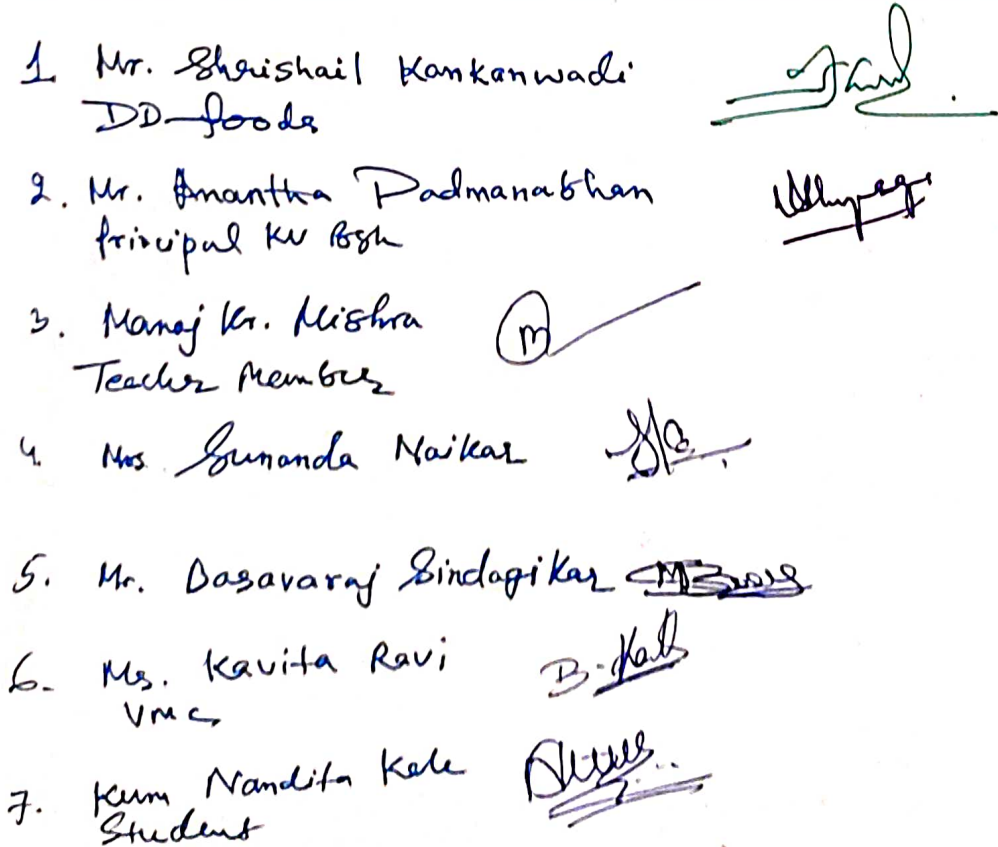 1. Mr. Shrishail Kankanwadi
DD-foods
2. Mr. Anantha Padmanabhan
Principal KV Bgk
3. Manoj Kr. Mishra
M
Teacher Member
4. Mrs. Sunanda Naikar
5. Mr. Basavaraj Sindagikar
6. Ms. Kavita Ravi
VMC
7. Kum Nandita Kale
Student